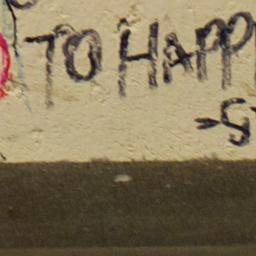 TO HAPP
-S